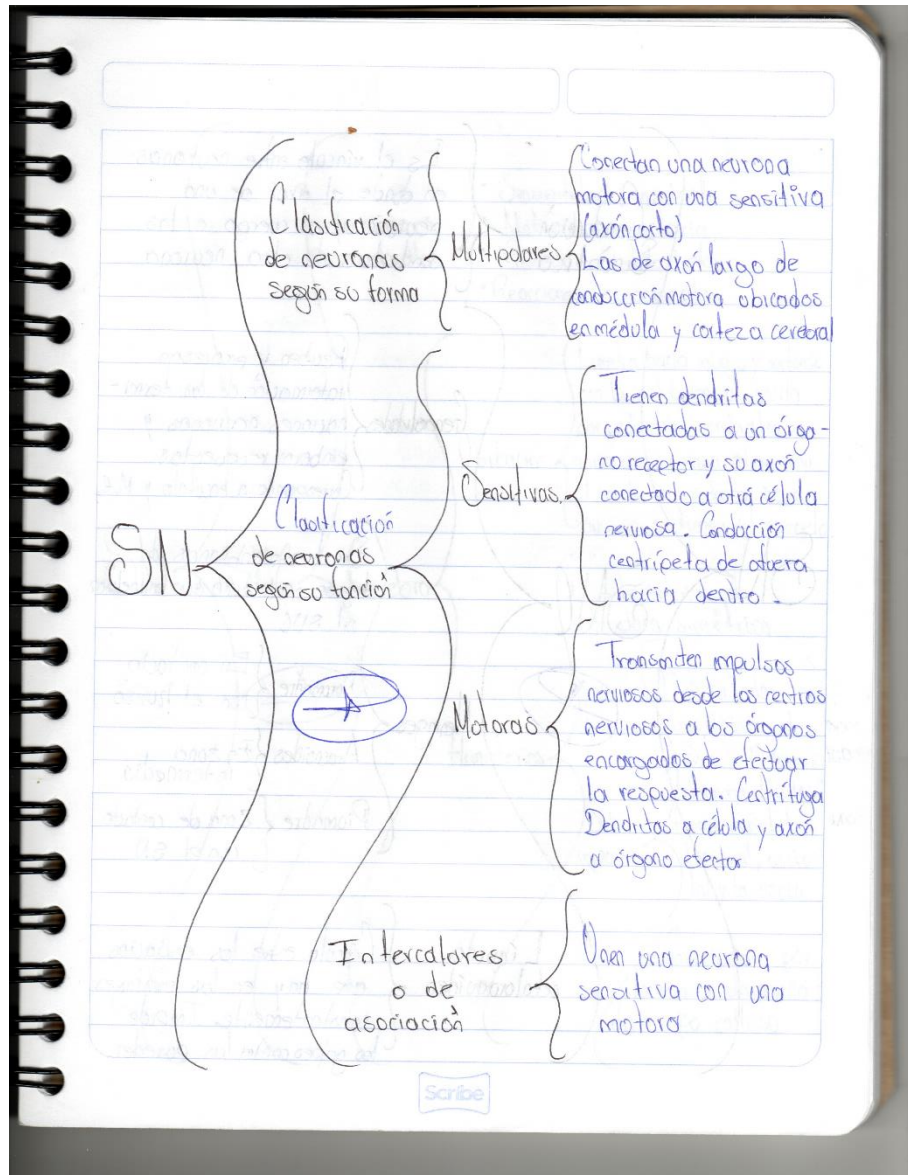 SN
Clasificación
de neuronas
según su forma
Multipolares
Conectan una neurona
motora con una sensitiva
(axón corto)
Las de axón largo de
conducción motora ubicados
en médula y corteza cerebral
Clasificación
de neuronas
según su función
Sensitivas.
Tienen dendritas
conectadas a un órga-
no receptor y su axón
conectado a otra célula
nerviosa. Conducción
centrípeta de afuera
hacia dentro.
Motoras
Transmiten impulsos
nerviosos desde los centros
nerviosos a los órganos
encargados de efectuar
la respuesta. Centrífuga
Dendritas a célula y axón
a órgano efector
Intercalares
o de
asociación
Unen una neurona
sensitiva con una
motora
Scribe